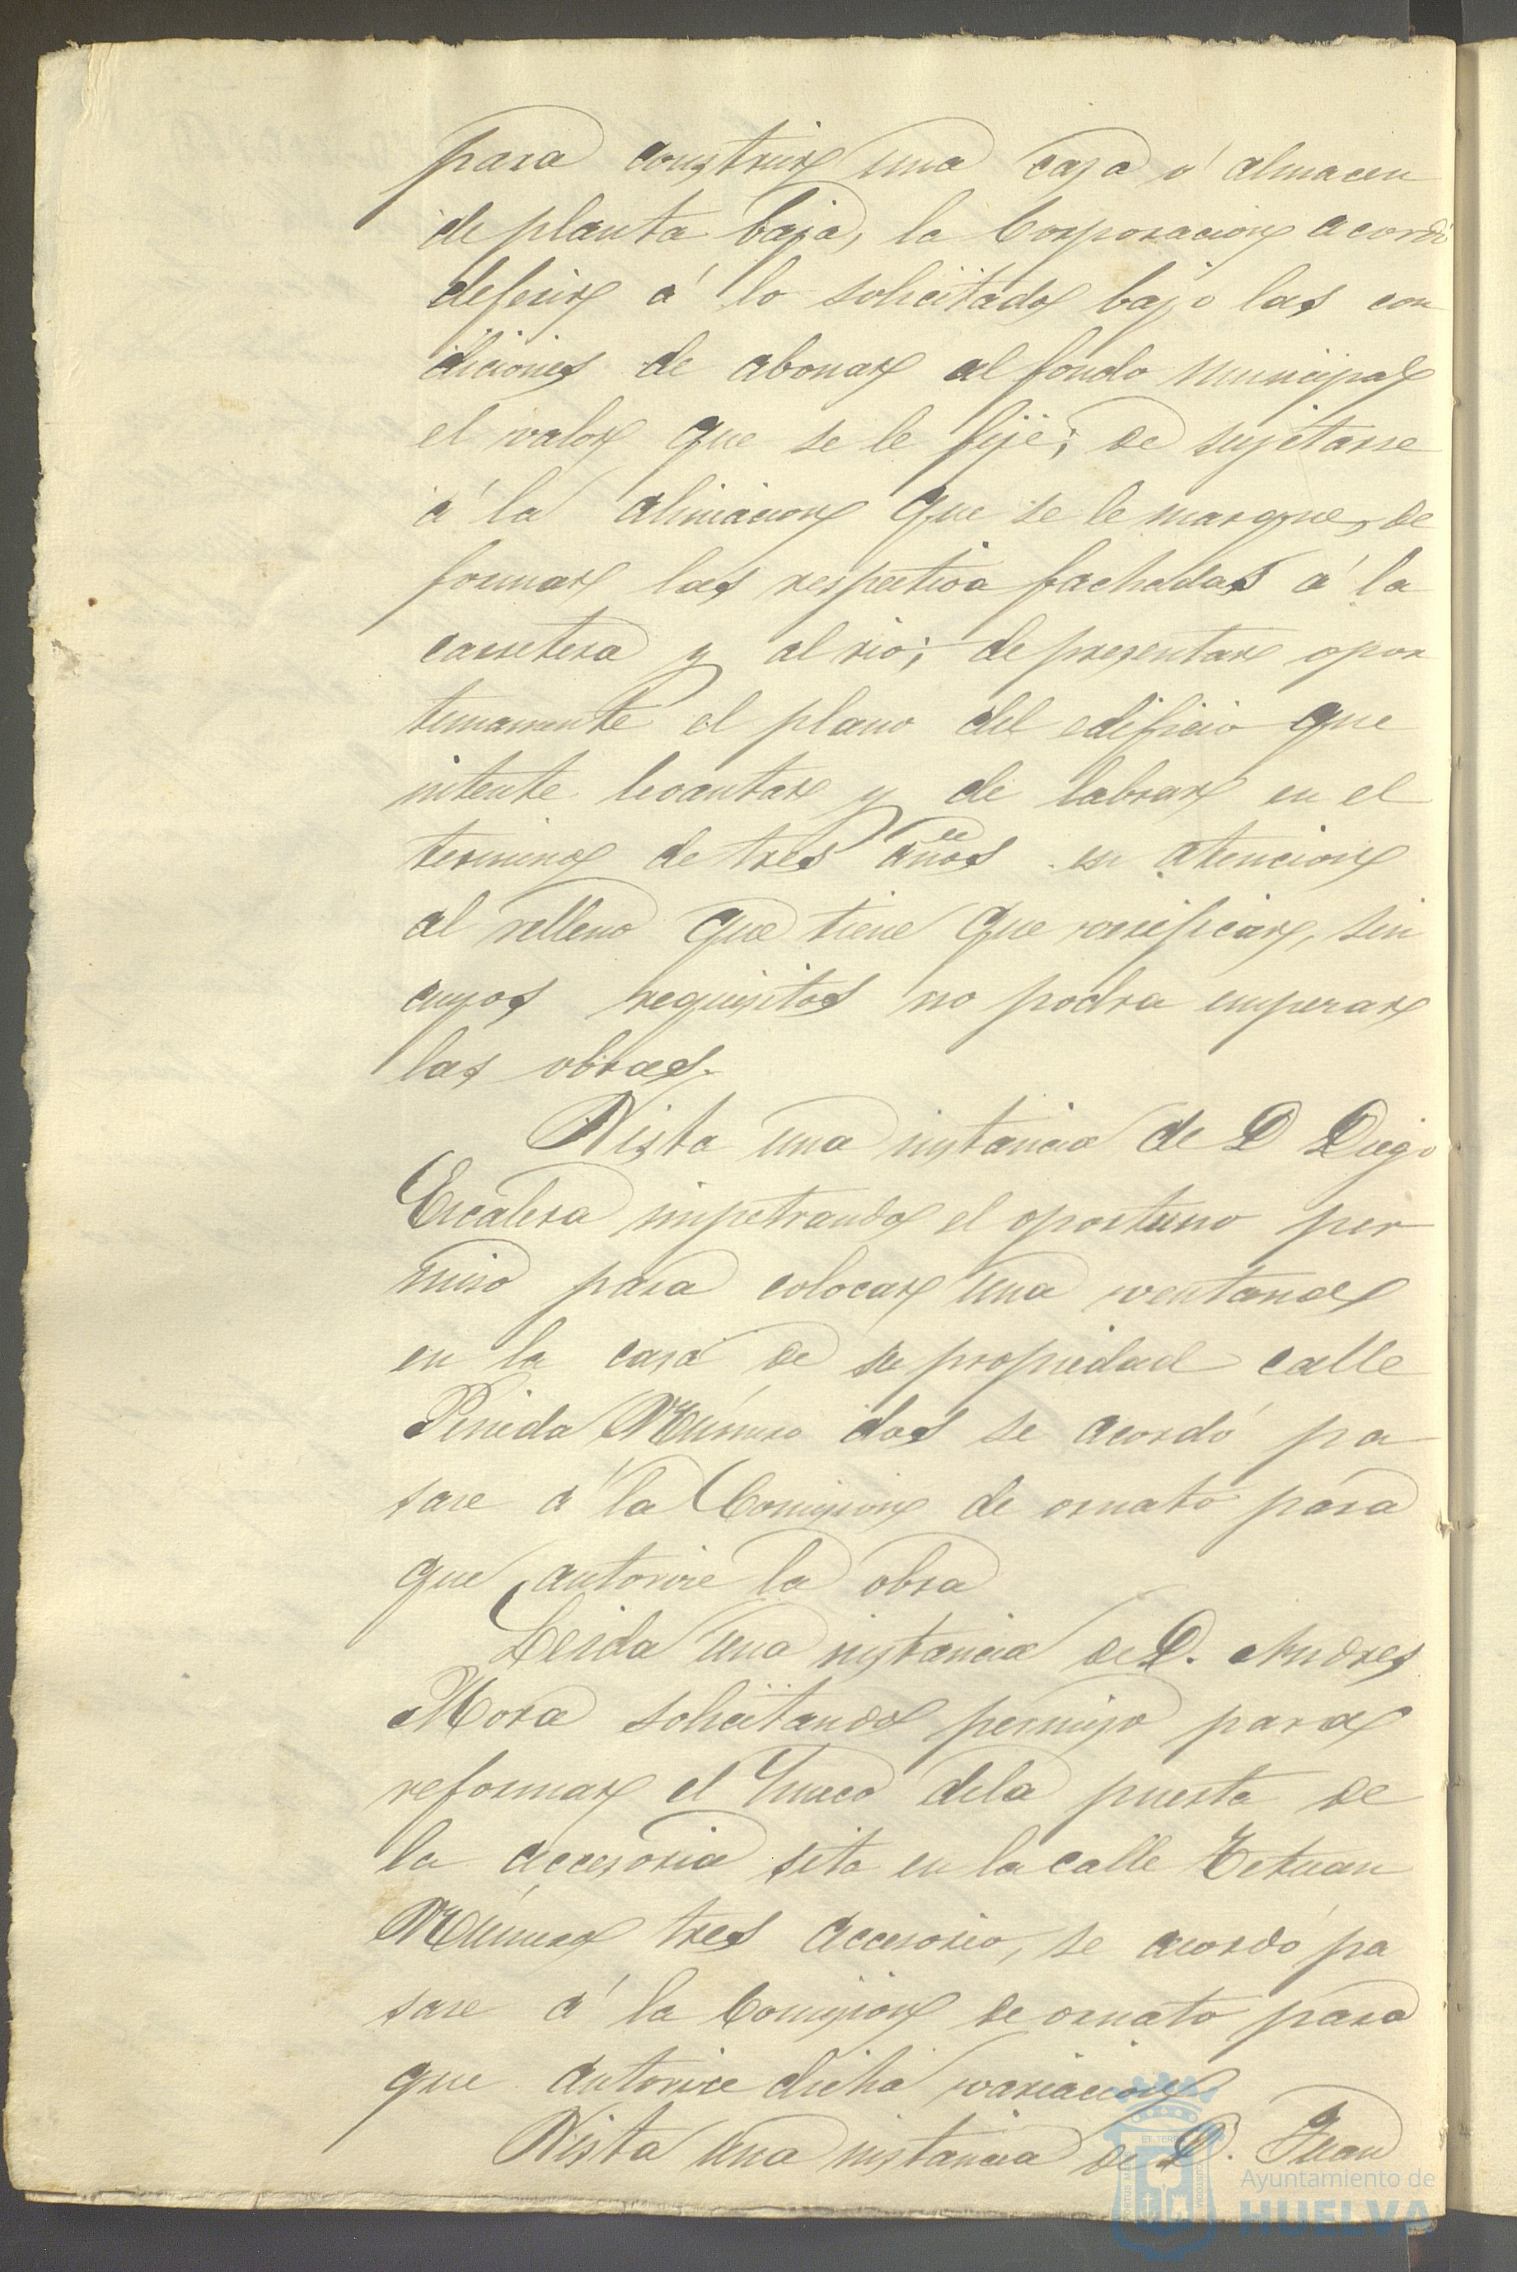 para construir una casa ó almacen
de planta baja, la Corporacion acordó
deferir á lo solicitado bajo las con
diciones de abonar al fondo municipal
el valor que se le fije; de sujetarse
á la alineacion que se le marque, de
formar las respectiva fachadas á la
carretera y al rio; de presentar opor
tunamente el plano del edificio que
intente levantar y de labrar en el
termino de tres años en atencion
al relleno que tiene que verificar, sin
cuyos requisitos no podra empezar
las obras.
Vista una instancia de D Diego
Escalera impetrando el oportuno per
miso para colocar una ventana
en la casa de su propiedad calle
Pineda Número dos se acordó pa
sare á la Comision de ornato para
que autorice la obra
Leida una instancia de D. Andres
Mora solicitando permiso para
reformar el hueco dela puerta de
la accesoria sita en la calle Tetuan
Número tres accesorio, se acordó pa
sare á la Comision de ornato para
que autorice dicha variacion
Vista una instancia de D. Juan
Ayuntamiento de
HUELVA